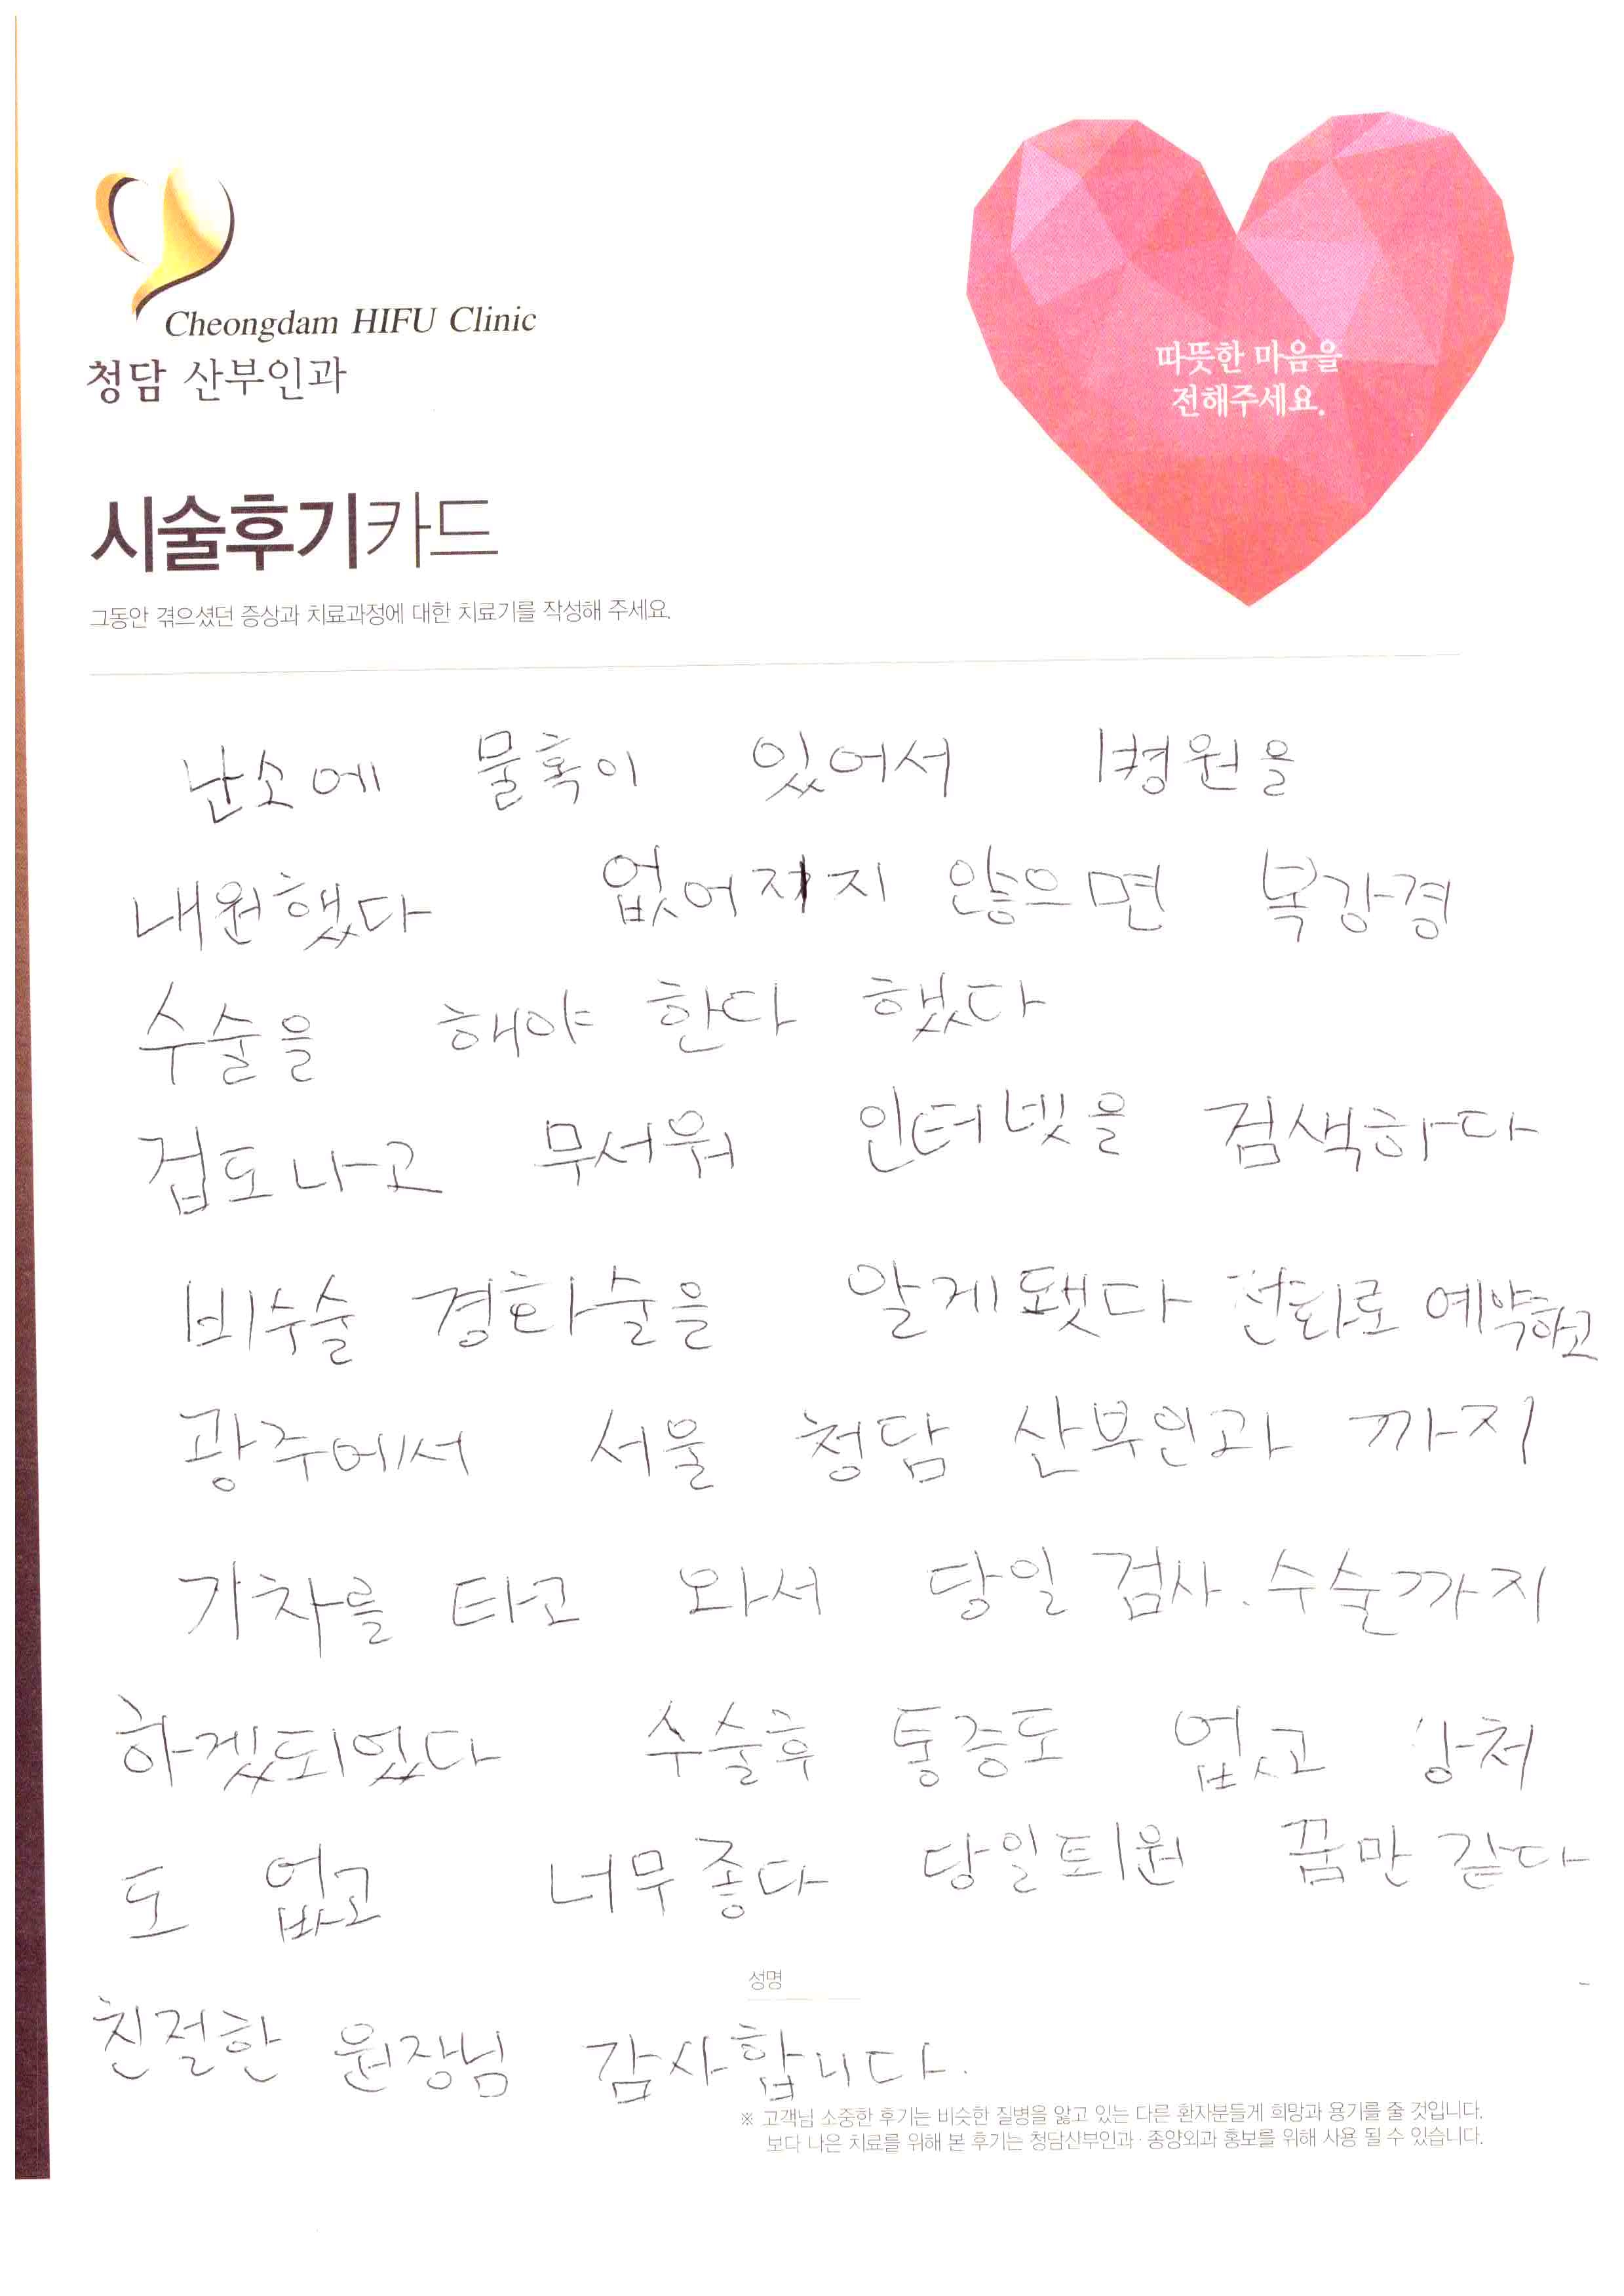 Cheongdam HIFU Clinic
청담 산부인과
따뜻한 마음을
전해주세요.
시술후기카드
그동안 겪으셨던 증상과 치료과정에 대한 치료기를 작성해 주세요.
난소에 물혹이 있어서 병원을
내원했다 없어지지 않으면 복강경
수술을 해야 한다 했다
겁도나고 무서워 인터넷을 검색하다
비수술 경화술을 알게됐다 전화로 예약하고
광주에서 서울 청담 산부인과 까지
기차를 타고 와서 당일 검사. 수술까지
하겠되었다 수술후 통증도 없고 상처
도 없고 너무좋다 당일퇴원 꿈만 같다
성명
친절한 원장님 감사합니다.
※ 고객님 소중한 후기는 비슷한 질병을 앓고 있는 다른 환자분들게 희망과 용기를 줄 것입니다.
보다 나은 치료를 위해 본 후기는 청담산부인과 · 종양외과 홍보를 위해 사용 될 수 있습니다.